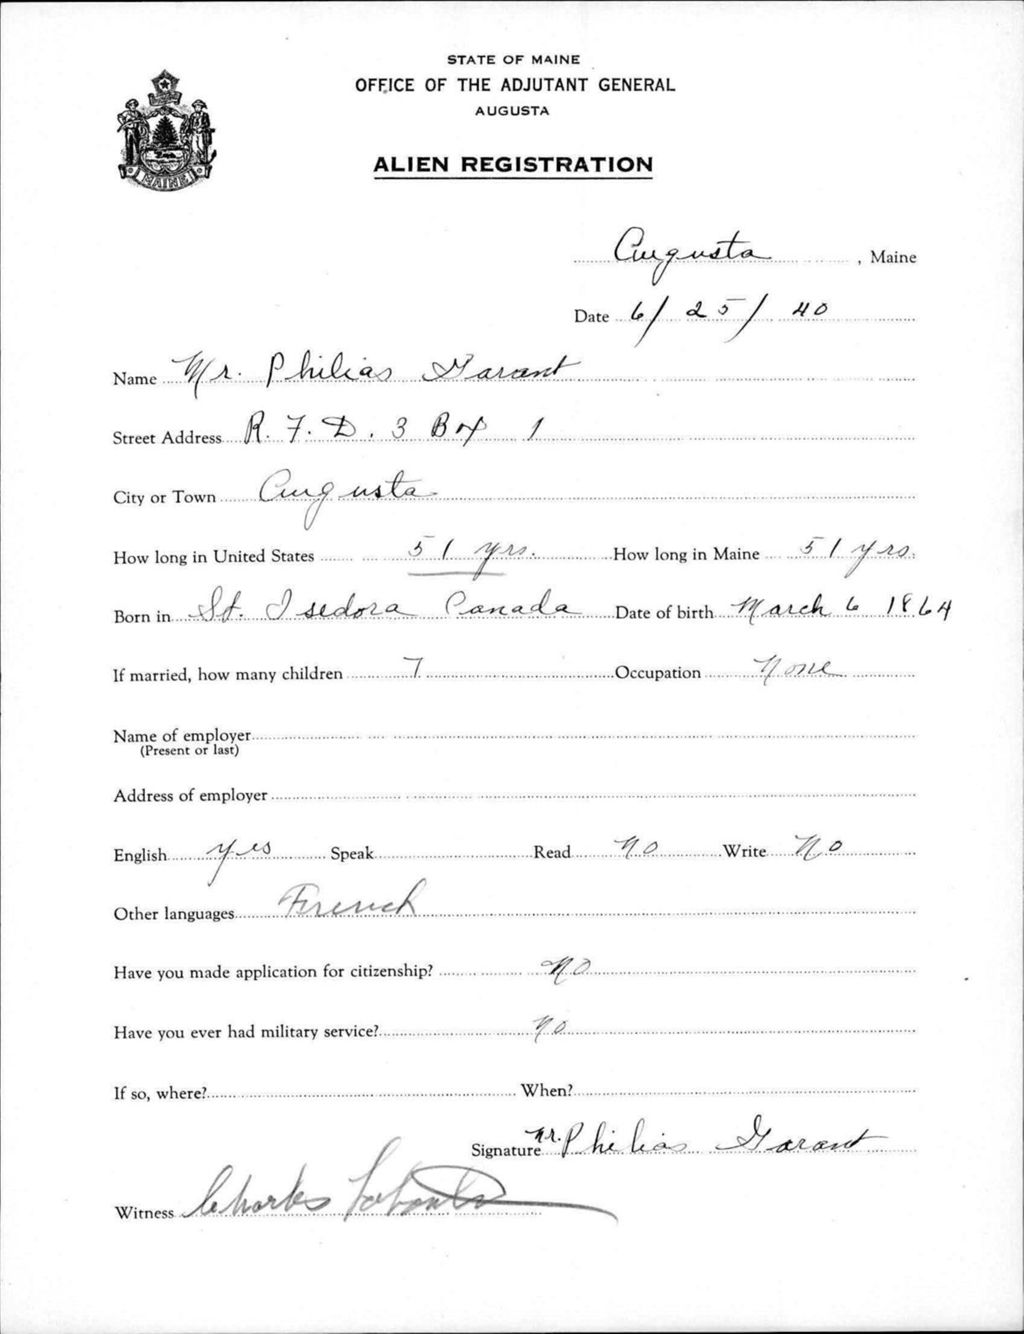 STATE OF MAINE
OFFICE OF THE ADJUTANT GENERAL
AUGUSTA
ALIEN REGISTRATION
MAINE
Augusta, Maine
Date 6/25/40
Name Mr. Philias Garant
Street Address R. F. D. 3 Box 1
City or Town Augusta
How long in United States 51 yrs. How long in Maine 51 yrs.
Born in St. Isedora Canada Date of birth March 6 1864
If married, how many children 7 Occupation None
Name of employer
(Present or last)
Address of employer
English yes Speak Read No Write No
Other languages French
Have you made application for citizenship? No
Have you ever had military service? No
If so, where? When?
Signature Mr. Philias Garant
Witness Charles